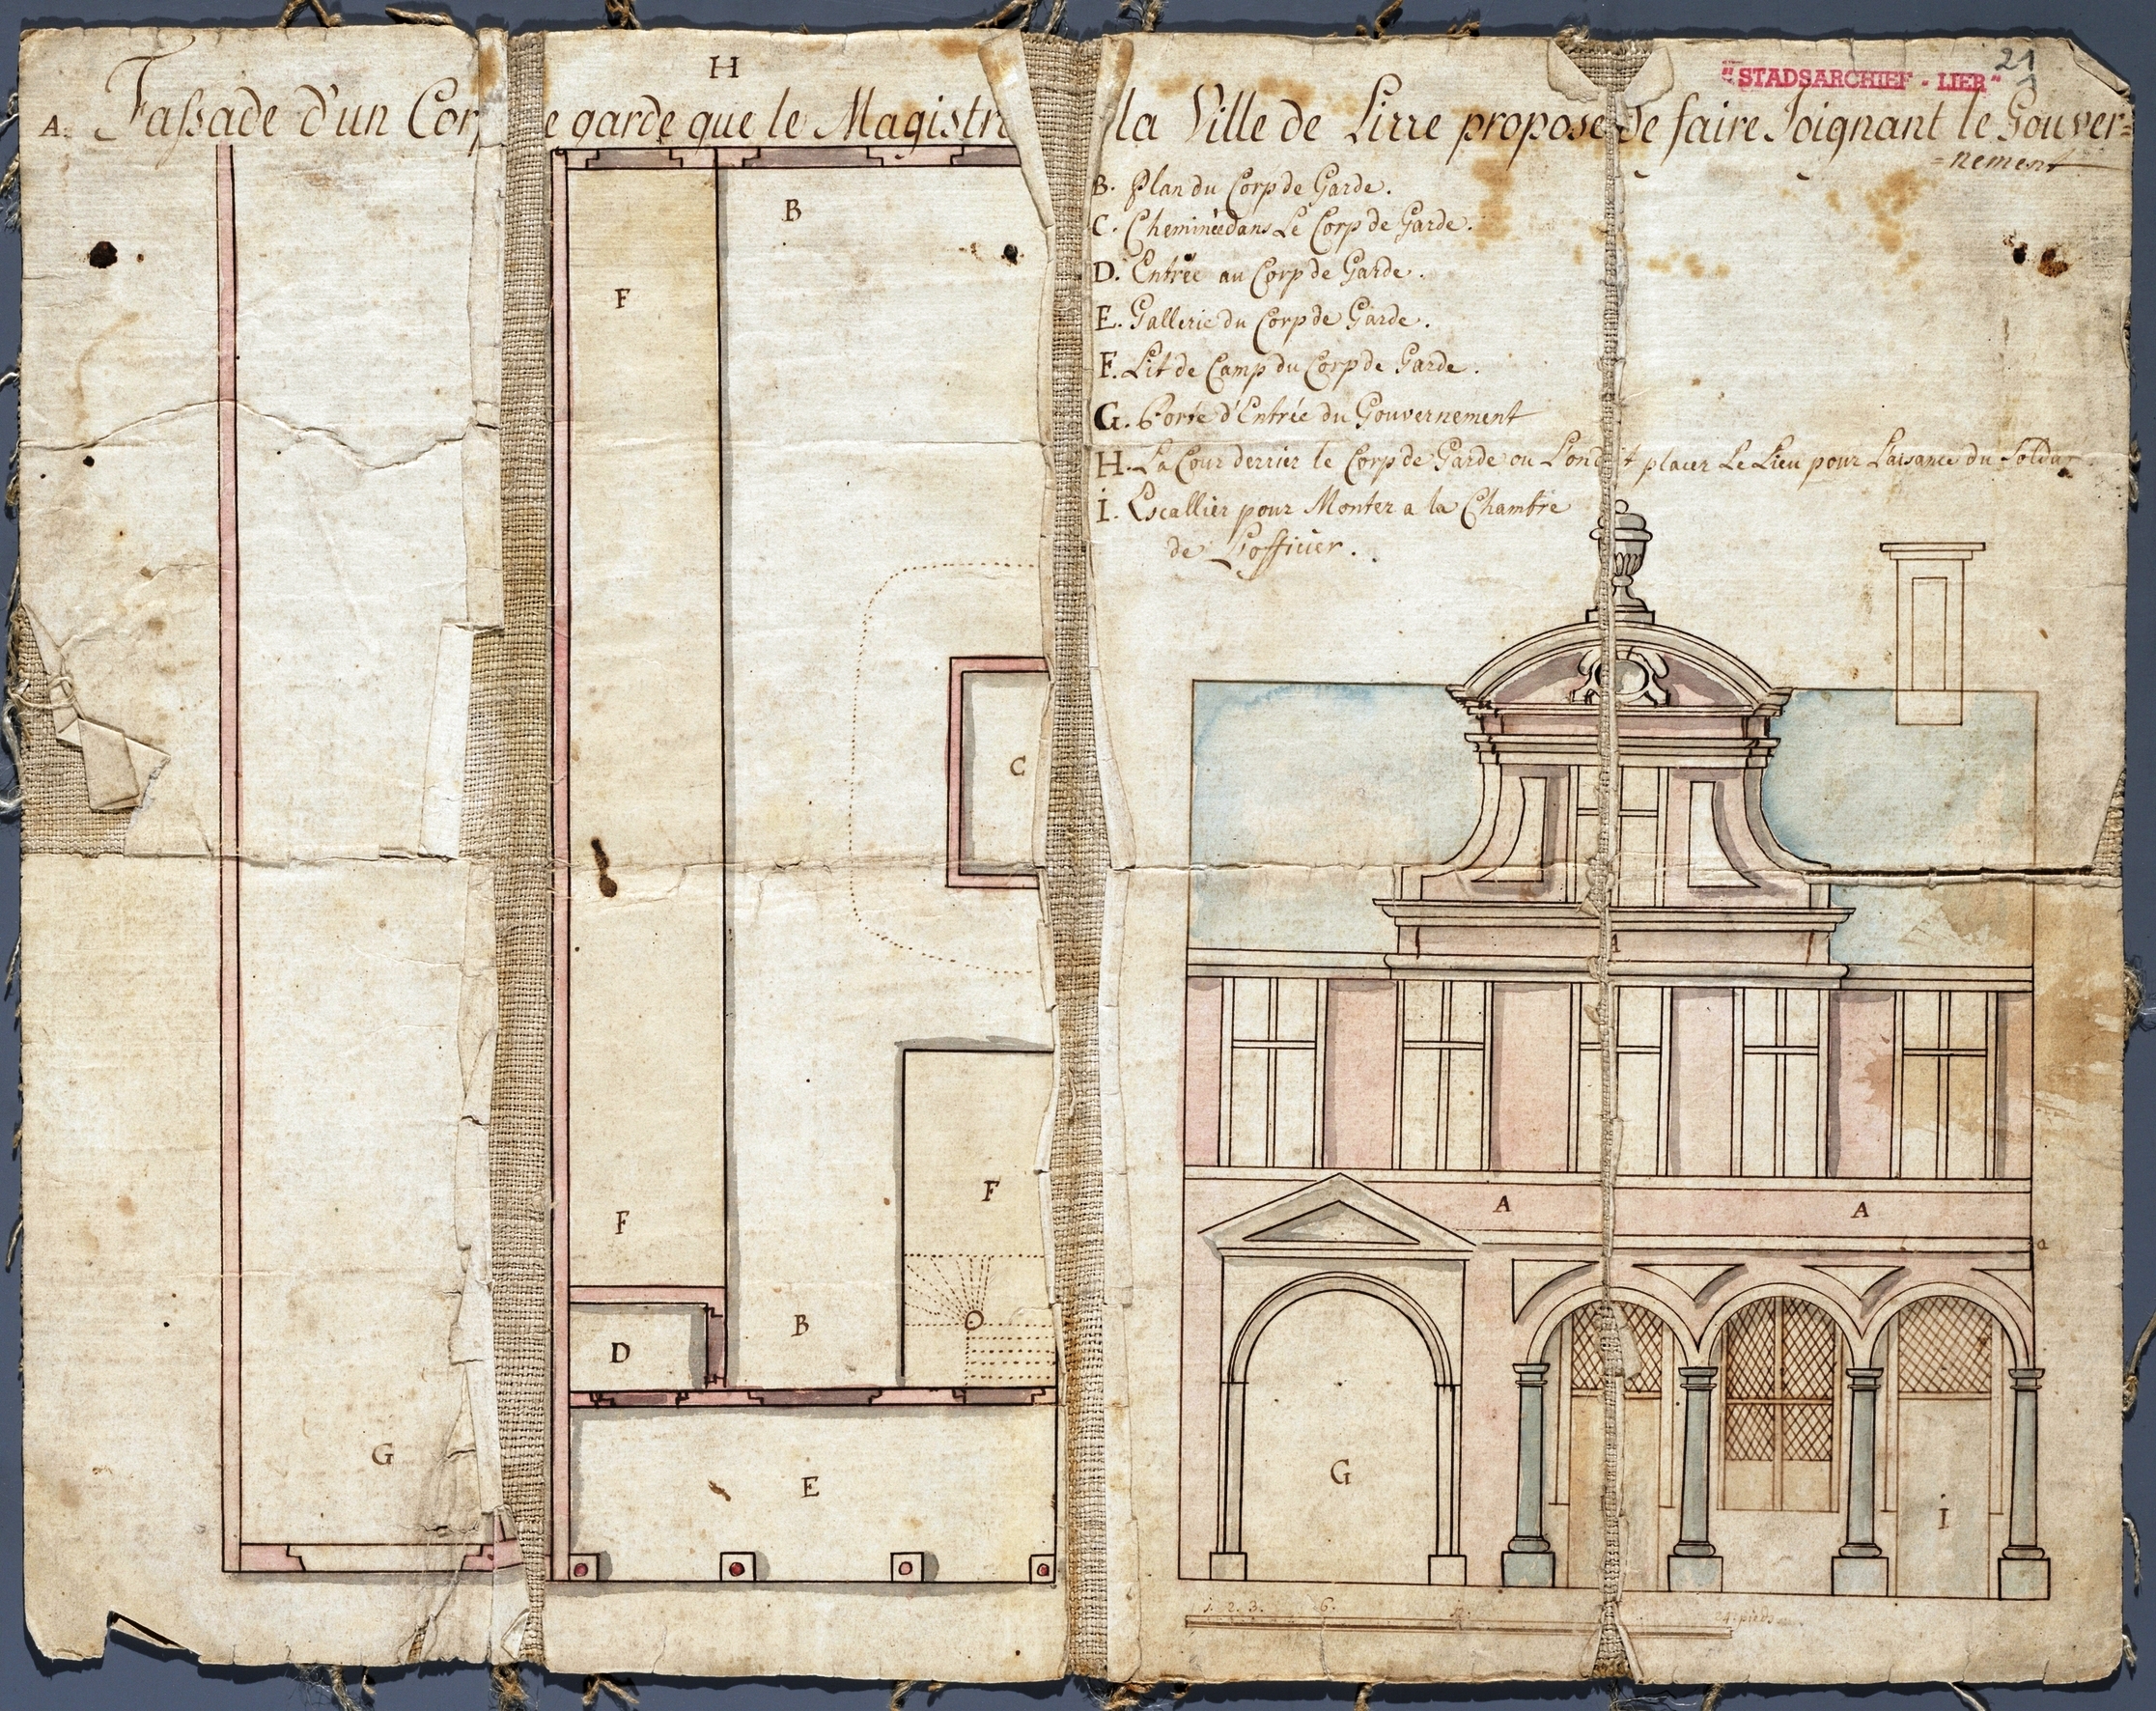 H
21
"STADSARCHIEF - LIER"
A. Faſsade d'un Cor e garde que le Magistr la Ville de Lirre propose de faire Joignant le Gouver=
=nement
B. Plan du Corp de Garde.
C. Cheminée dans Le Corp de Garde.
D. Entrée au Corp de Garde.
E. Gallerie du Corp de Garde.
F. Lit de Camp du Corp de Garde.
G. Porte d'Entrée du Gouvernement
H. La Cour derrier le Corp de Garde ou L'on placer Le Lieu pour Laisance du Soldat
I. Escallier pour Monter a la Chambre
de L'officier.
B
F
C
A
F
F
A
A
a
D
B
G
E
G
I
1. 2. 3. 6. 12. 24 pieds